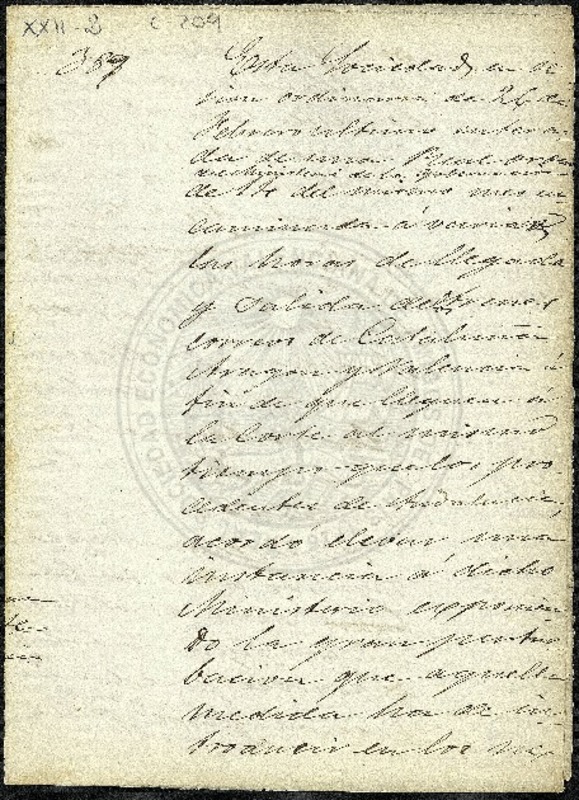 XXII-2 C 209
389
Esta Sociedad, en se
sion ordinaria de 26 de
Febrero ultimo entera
da de una Real orden
del Ministerio de la Gobernacion
de 110 del mismo mes en
caminada á variar
las horas de llegada
y salida de trenes
correos de Cataluña
Aragon y Valencia á
fin de que lleguen á
la Corte al mismo
tiempo que los pro
cedentes de Andalucia,
acordó elevar una
instancia á dicho
Ministerio exponien
do la gran pertur
bacion que aquella
medida ha de in
troducir en los ne